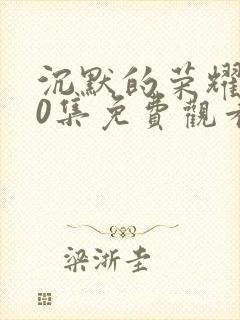 沉默的荣耀
0集免費觀看
梁浙圭